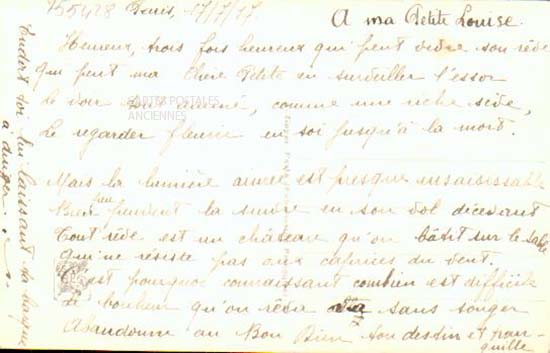 155428 Paris, 17/7/17
A ma Petite Louise.
Heureux, trois fois heureux qui peut vivre son rêve
Qui peut ma Chère Petite en surveiller l'essor
Le voir, comme une riche sève,
Le regarder fleurir en soi jusqu'à la mort.
CARTES POSTALES
ANCIENNES
Mais la lumière aimée est presque insaisissable
Bien peu peuvent la suivre en son vol décevant
Tout rêve est un château qu'on bâtit sur le sable
Qui ne résiste pas aux caprices du vent.
C'est pourquoi connaissant combien est difficile
Le bonheur qu'on rêve sans songer
Abandonne au Bon Dieu ton destin et tran-
quille
Endors toi lui laissant ta barque
à diriger